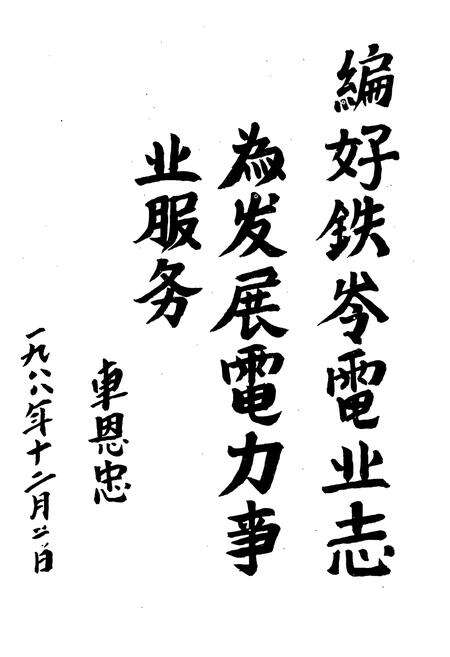 編好鉄岺電业志
為发展電力事
业服务
車恩忠
一九八八年十二月